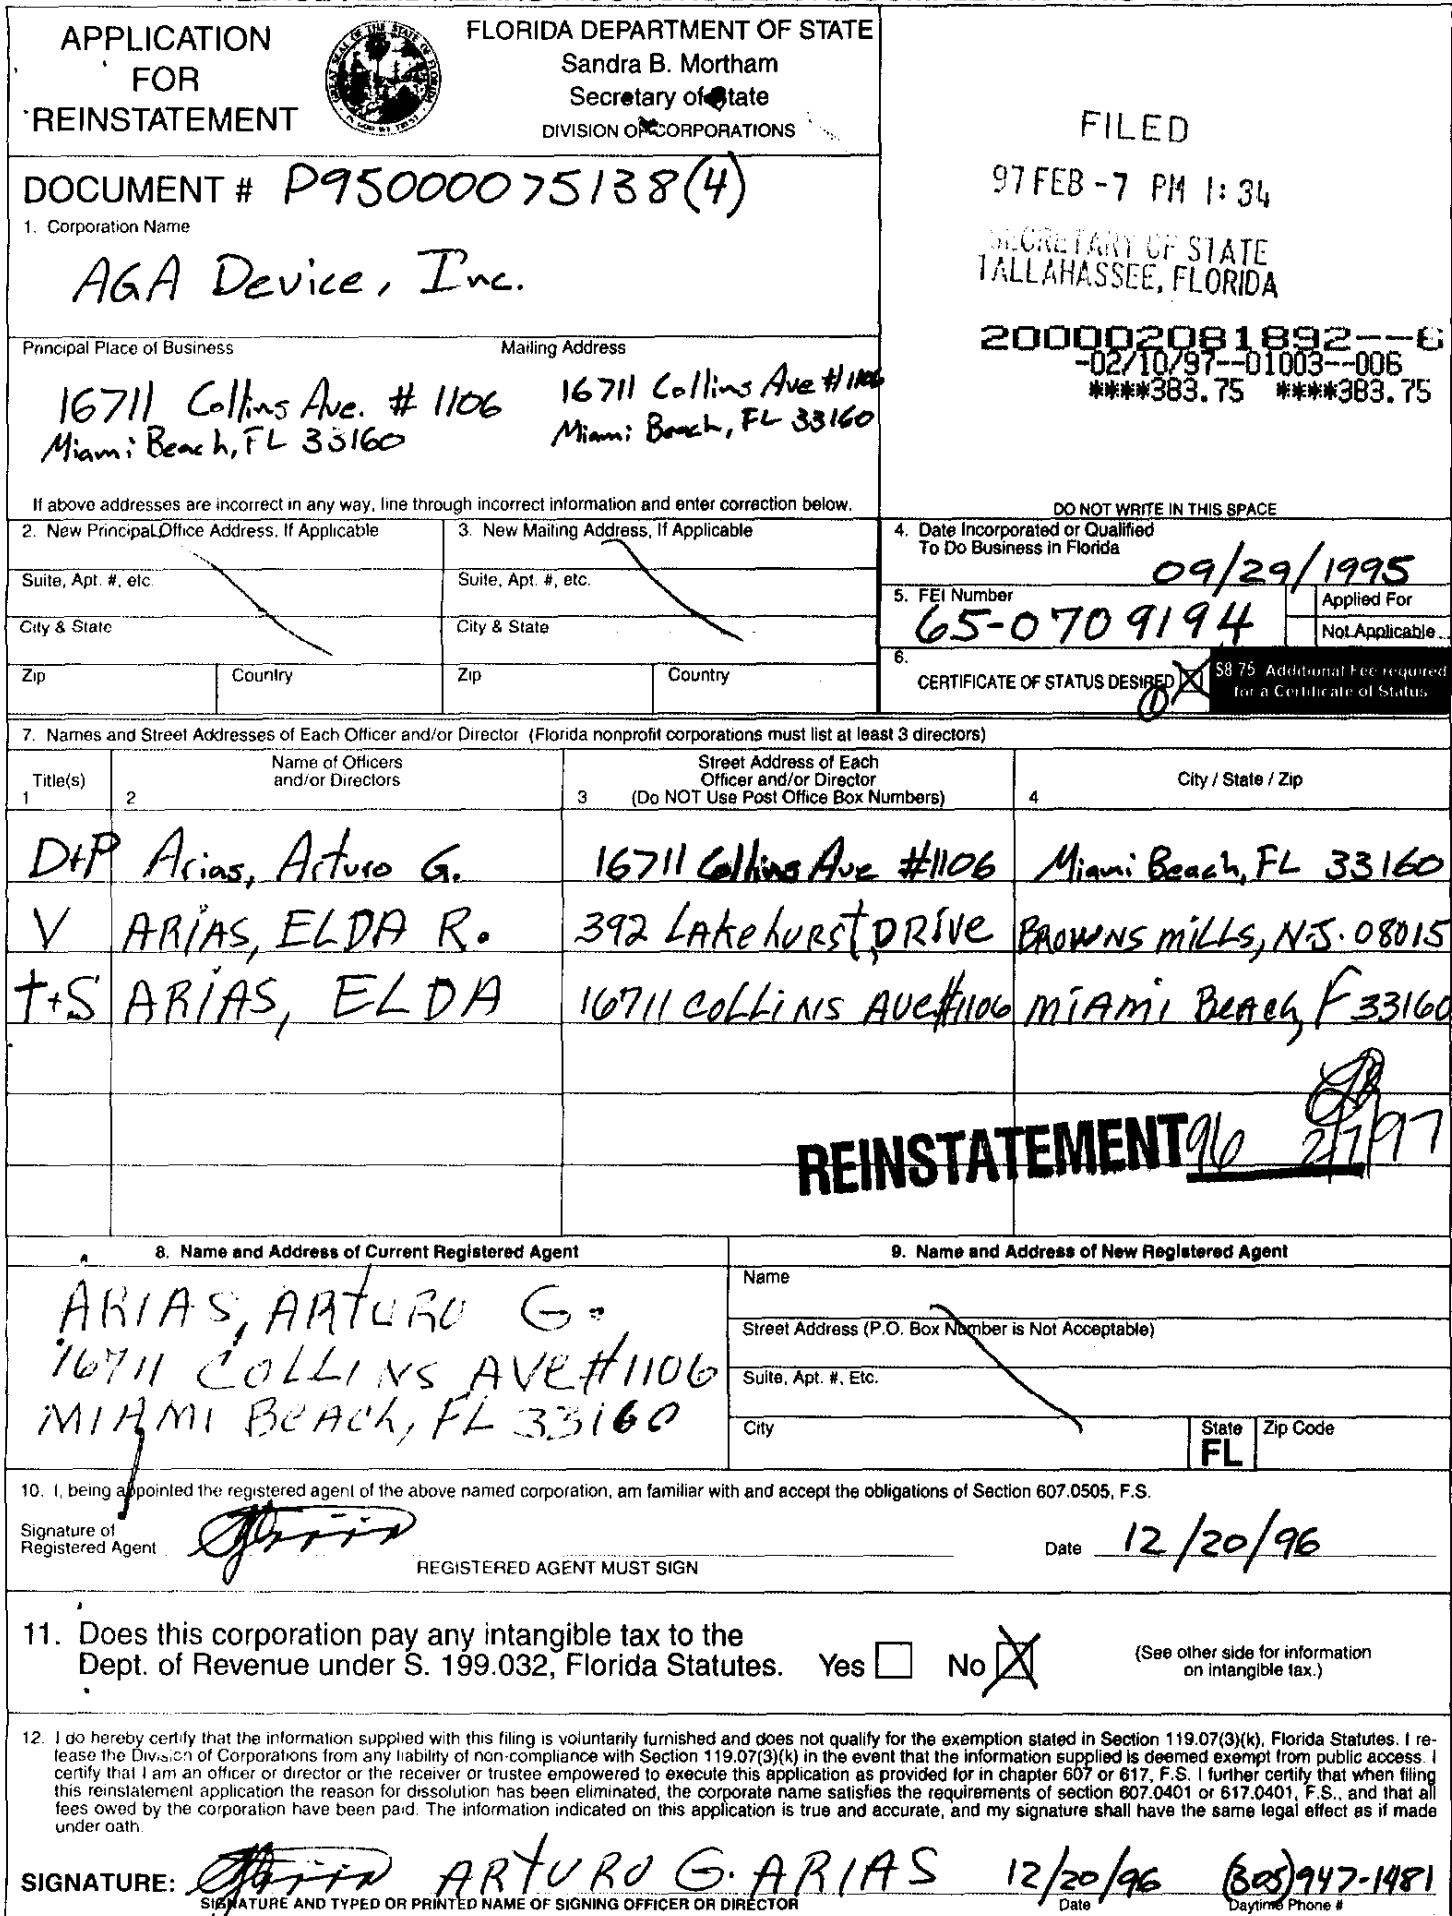 APPLICATION
FOR
REINSTATEMENT
FLORIDA DEPARTMENT OF STATE
Sandra B. Mortham
Secretary of State
DIVISION OF CORPORATIONS
FILED
97 FEB -7 PM 1:34
SECRETARY OF STATE
TALLAHASSEE, FLORIDA
DOCUMENT # P95000075138(4)
1. Corporation Name
AGA Device, Inc.
200002081892--6
-02/10/97--01003--006
****383.75 ****383.75
Principal Place of Business Mailing Address
16711 Collins Ave. # 1106 16711 Collins Ave #1106
Miami Beach, FL 33160 Miami Beach, FL 33160
If above addresses are incorrect in any way, line through incorrect information and enter correction below.
DO NOT WRITE IN THIS SPACE
2. New Principal Office Address, If Applicable 3. New Mailing Address, If Applicable
Suite, Apt. #, etc. Suite, Apt. #, etc.
City & State City & State
Zip Country Zip Country
4. Date Incorporated or Qualified
To Do Business in Florida
09/29/1995
5. FEI Number
65-0709194
Applied For
Not Applicable
6.
CERTIFICATE OF STATUS DESIRED X
(1)
$8.75 Additional Fee required
for a Certificate of Status
7. Names and Street Addresses of Each Officer and/or Director (Florida nonprofit corporations must list at least 3 directors)
Title(s) Name of Officers and/or Directors Street Address of Each Officer and/or Director (Do NOT Use Post Office Box Numbers) City / State / Zip
1 2 3 4
D+P Arias, Arturo G. 16711 Collins Ave #1106 Miami Beach, FL 33160
V ARIAS, ELDA R. 392 LAKehURST, DRIVe BROWNS MiLLS, N.J. 08015
T+S ARIAS, ELDA 16711 COLLiNS AVe#1106 MiAMi BeACh, F 33160
REINSTATEMENT 96 2/7/97
8. Name and Address of Current Registered Agent
ARIAS, ARTURO G.
16711 COLLINS AVE#1106
MIAMI BeACh, FL 33160
9. Name and Address of New Registered Agent
Name
Street Address (P.O. Box Number is Not Acceptable)
Suite, Apt. #, Etc.
City State Zip Code
FL
10. I, being appointed the registered agent of the above named corporation, am familiar with and accept the obligations of Section 607.0505, F.S.
Signature of
Registered Agent
Date 12/20/96
REGISTERED AGENT MUST SIGN
11. Does this corporation pay any intangible tax to the
Dept. of Revenue under S. 199.032, Florida Statutes. Yes No X
(See other side for information
on intangible tax.)
12. I do hereby certify that the information supplied with this filing is voluntarily furnished and does not qualify for the exemption stated in Section 119.07(3)(k), Florida Statutes. I re-
lease the Division of Corporations from any liability of non-compliance with Section 119.07(3)(k) in the event that the information supplied is deemed exempt from public access. I
certify that I am an officer or director or the receiver or trustee empowered to execute this application as provided for in chapter 607 or 617, F.S. I further certify that when filing
this reinstatement application the reason for dissolution has been eliminated, the corporate name satisfies the requirements of section 607.0401 or 617.0401, F.S., and that all
fees owed by the corporation have been paid. The information indicated on this application is true and accurate, and my signature shall have the same legal effect as if made
under oath.
SIGNATURE: ARTURO G. ARIAS 12/20/96 (305)947-1481
SIGNATURE AND TYPED OR PRINTED NAME OF SIGNING OFFICER OR DIRECTOR Date Daytime Phone #